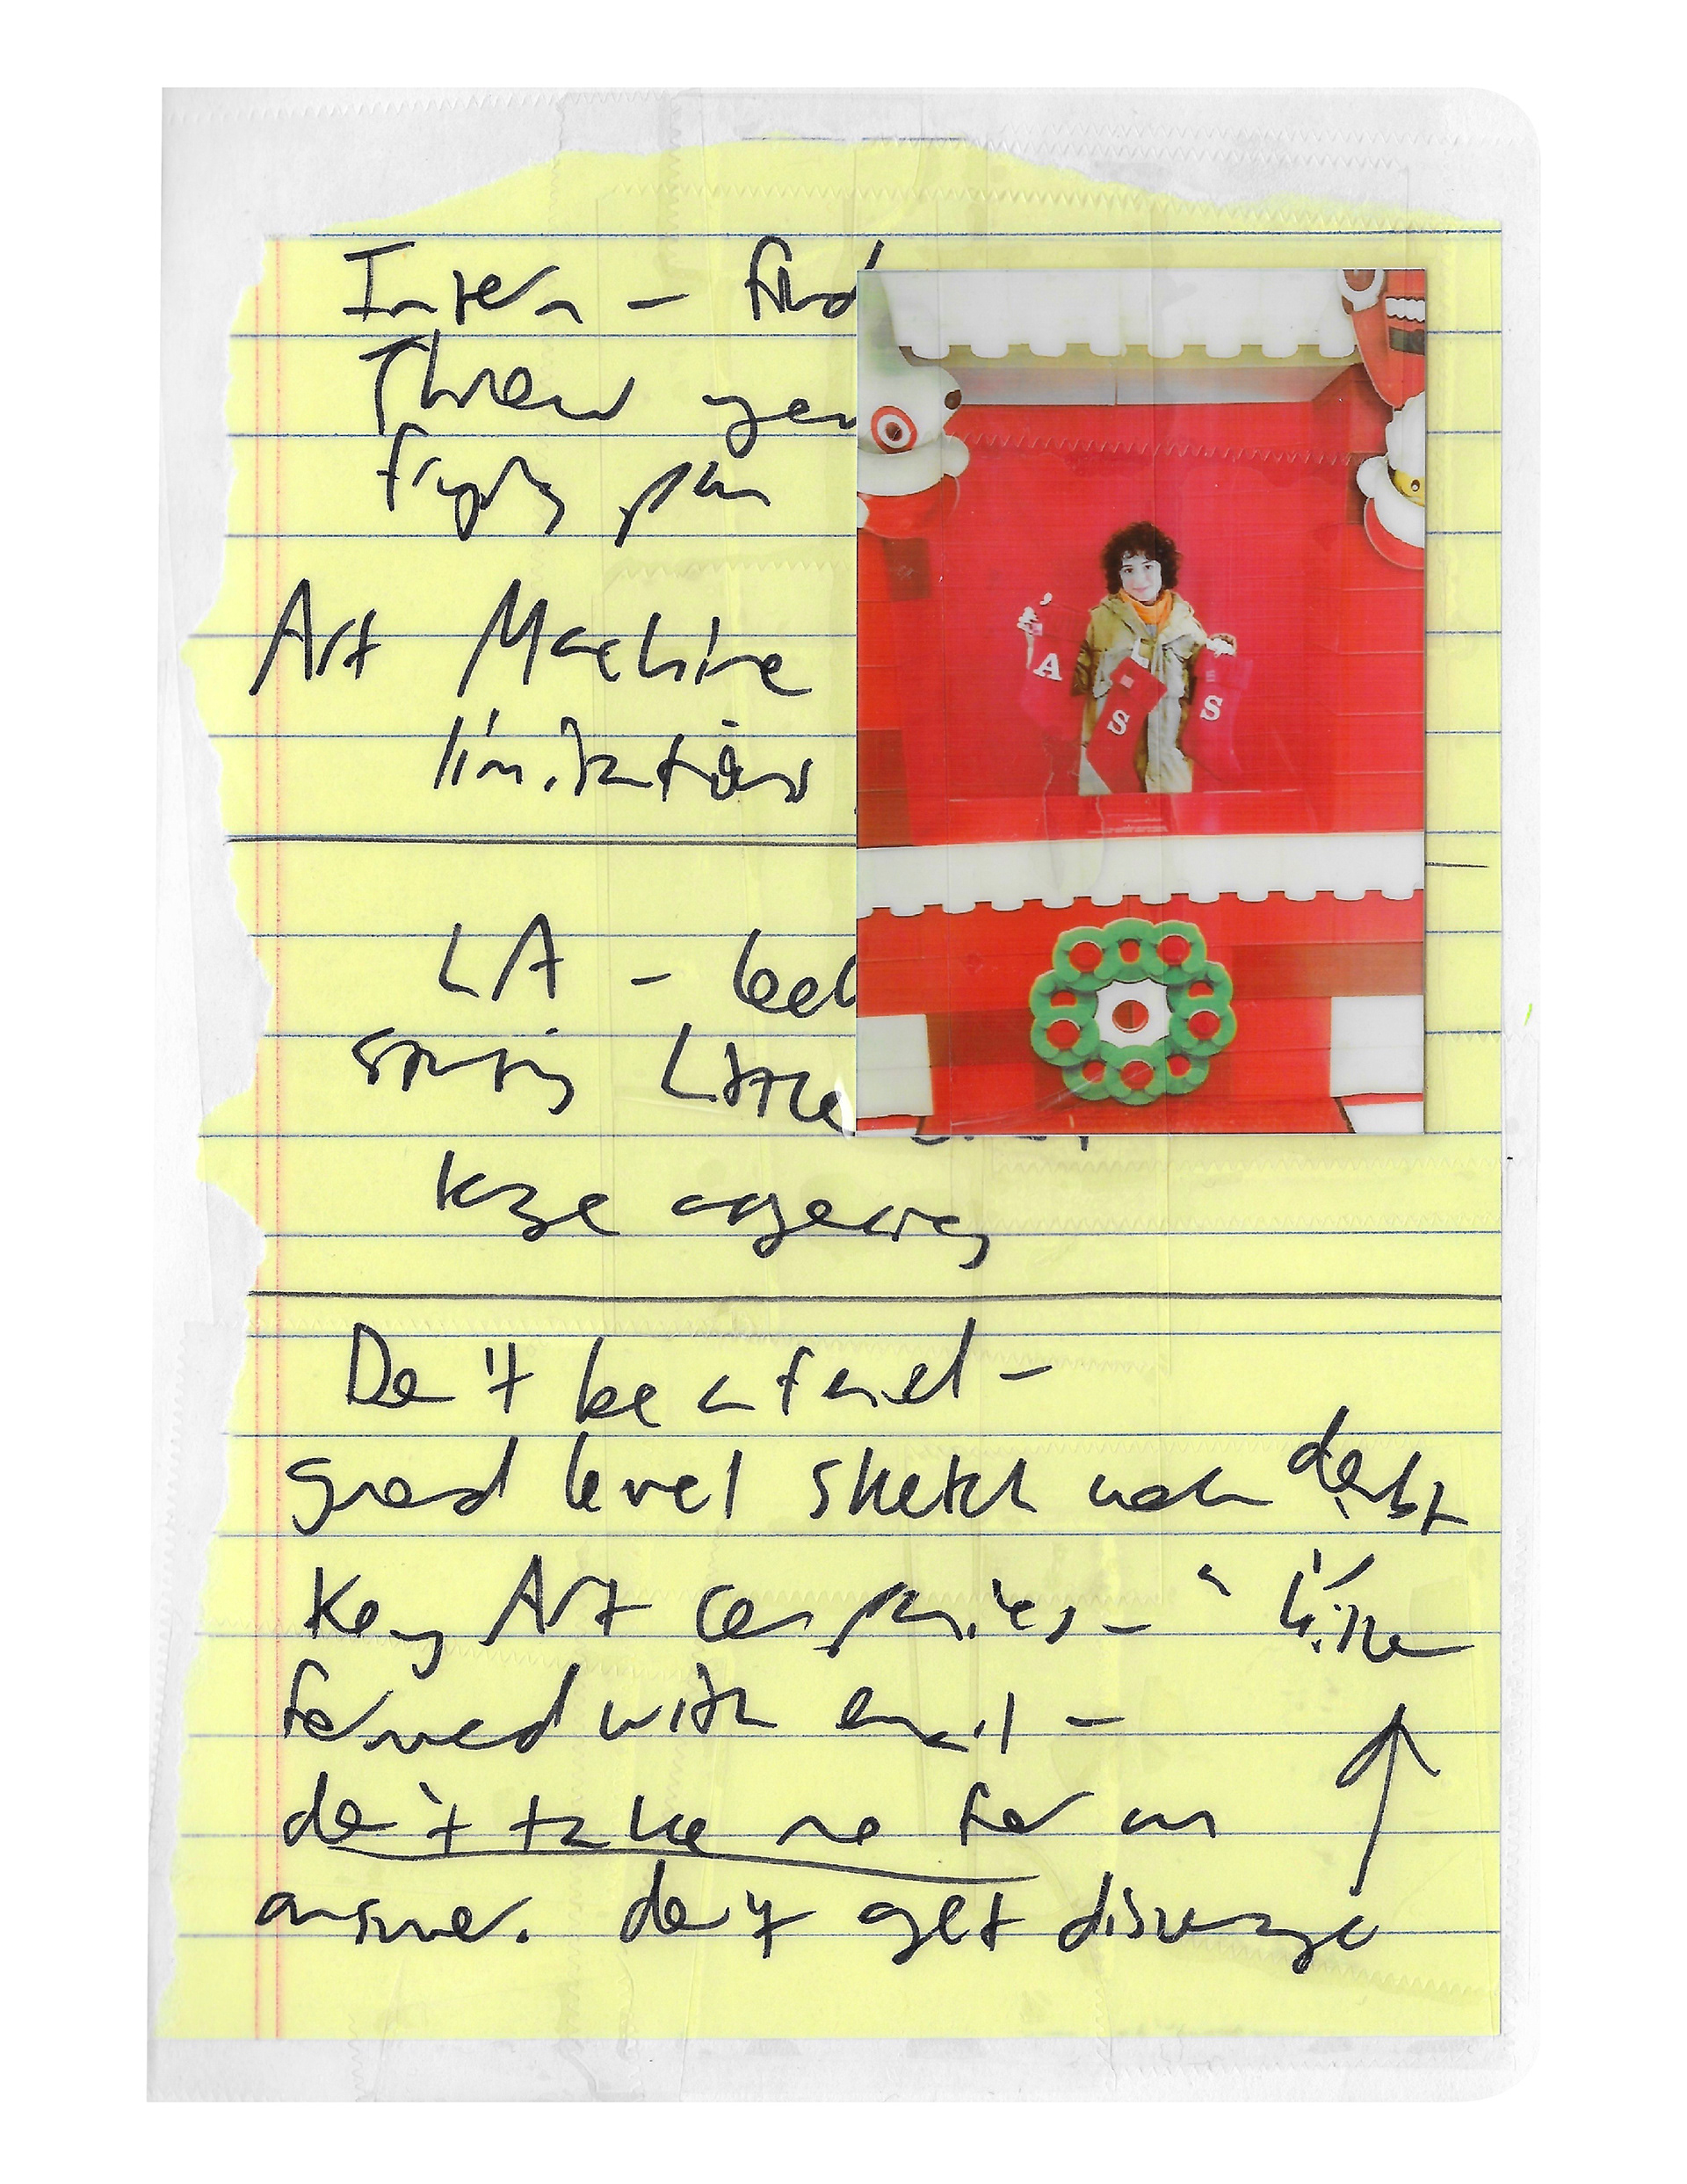 Intern - find
Throw you
frying pan
Art Machine
limitations
LA -
spring Little
large agency
Don't be afraid -
good level sketch
Key Art companies - " little
forward with email -
don't take no for an
answer. don't get discourage
A
S
S